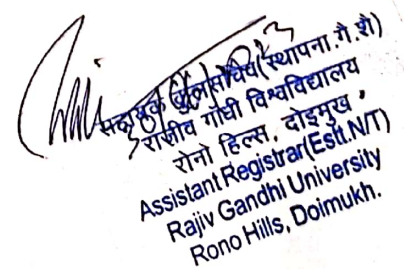 सहायक कुलसचिव(स्थापना.गै.शै)
राजीव गाँधी विश्वविद्यालय
रोनो हिल्स, दोइमुख,
Assistant Registrar(Estt.N/T)
Rajiv Gandhi University
Rono Hills, Doimukh.